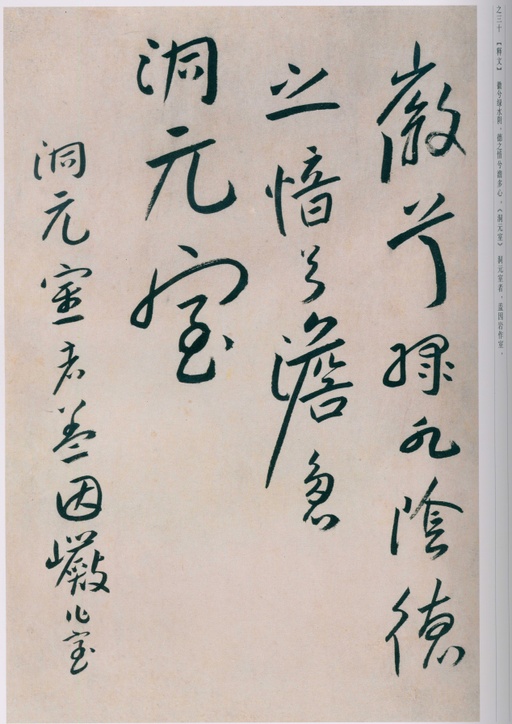 之三十 【释文】 徽兮绿水阴，德之愔兮澹多心。《洞元室》 洞元室者，盖因岩作室，
徽兮緑水陰德
之愔兮澹多心
洞元室
洞元室者蓋因巖作室